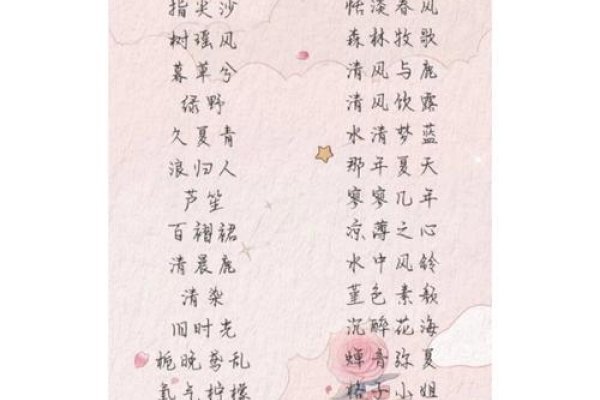 指尖沙
树瑶风
暮草兮
绿野
久夏青
浪归人
芦笙
百褶裙
清晨鹿
清染
旧时光
栀晚莺乱
氧气柠檬
恬淡春风
森林牧歌
清风与鹿
清风饮露
水清梦蓝
那年夏天
寥寥几年
凉薄之心
水中风铃
堇色素歌
沉醉花海
蝉音弥夏
格子小姐